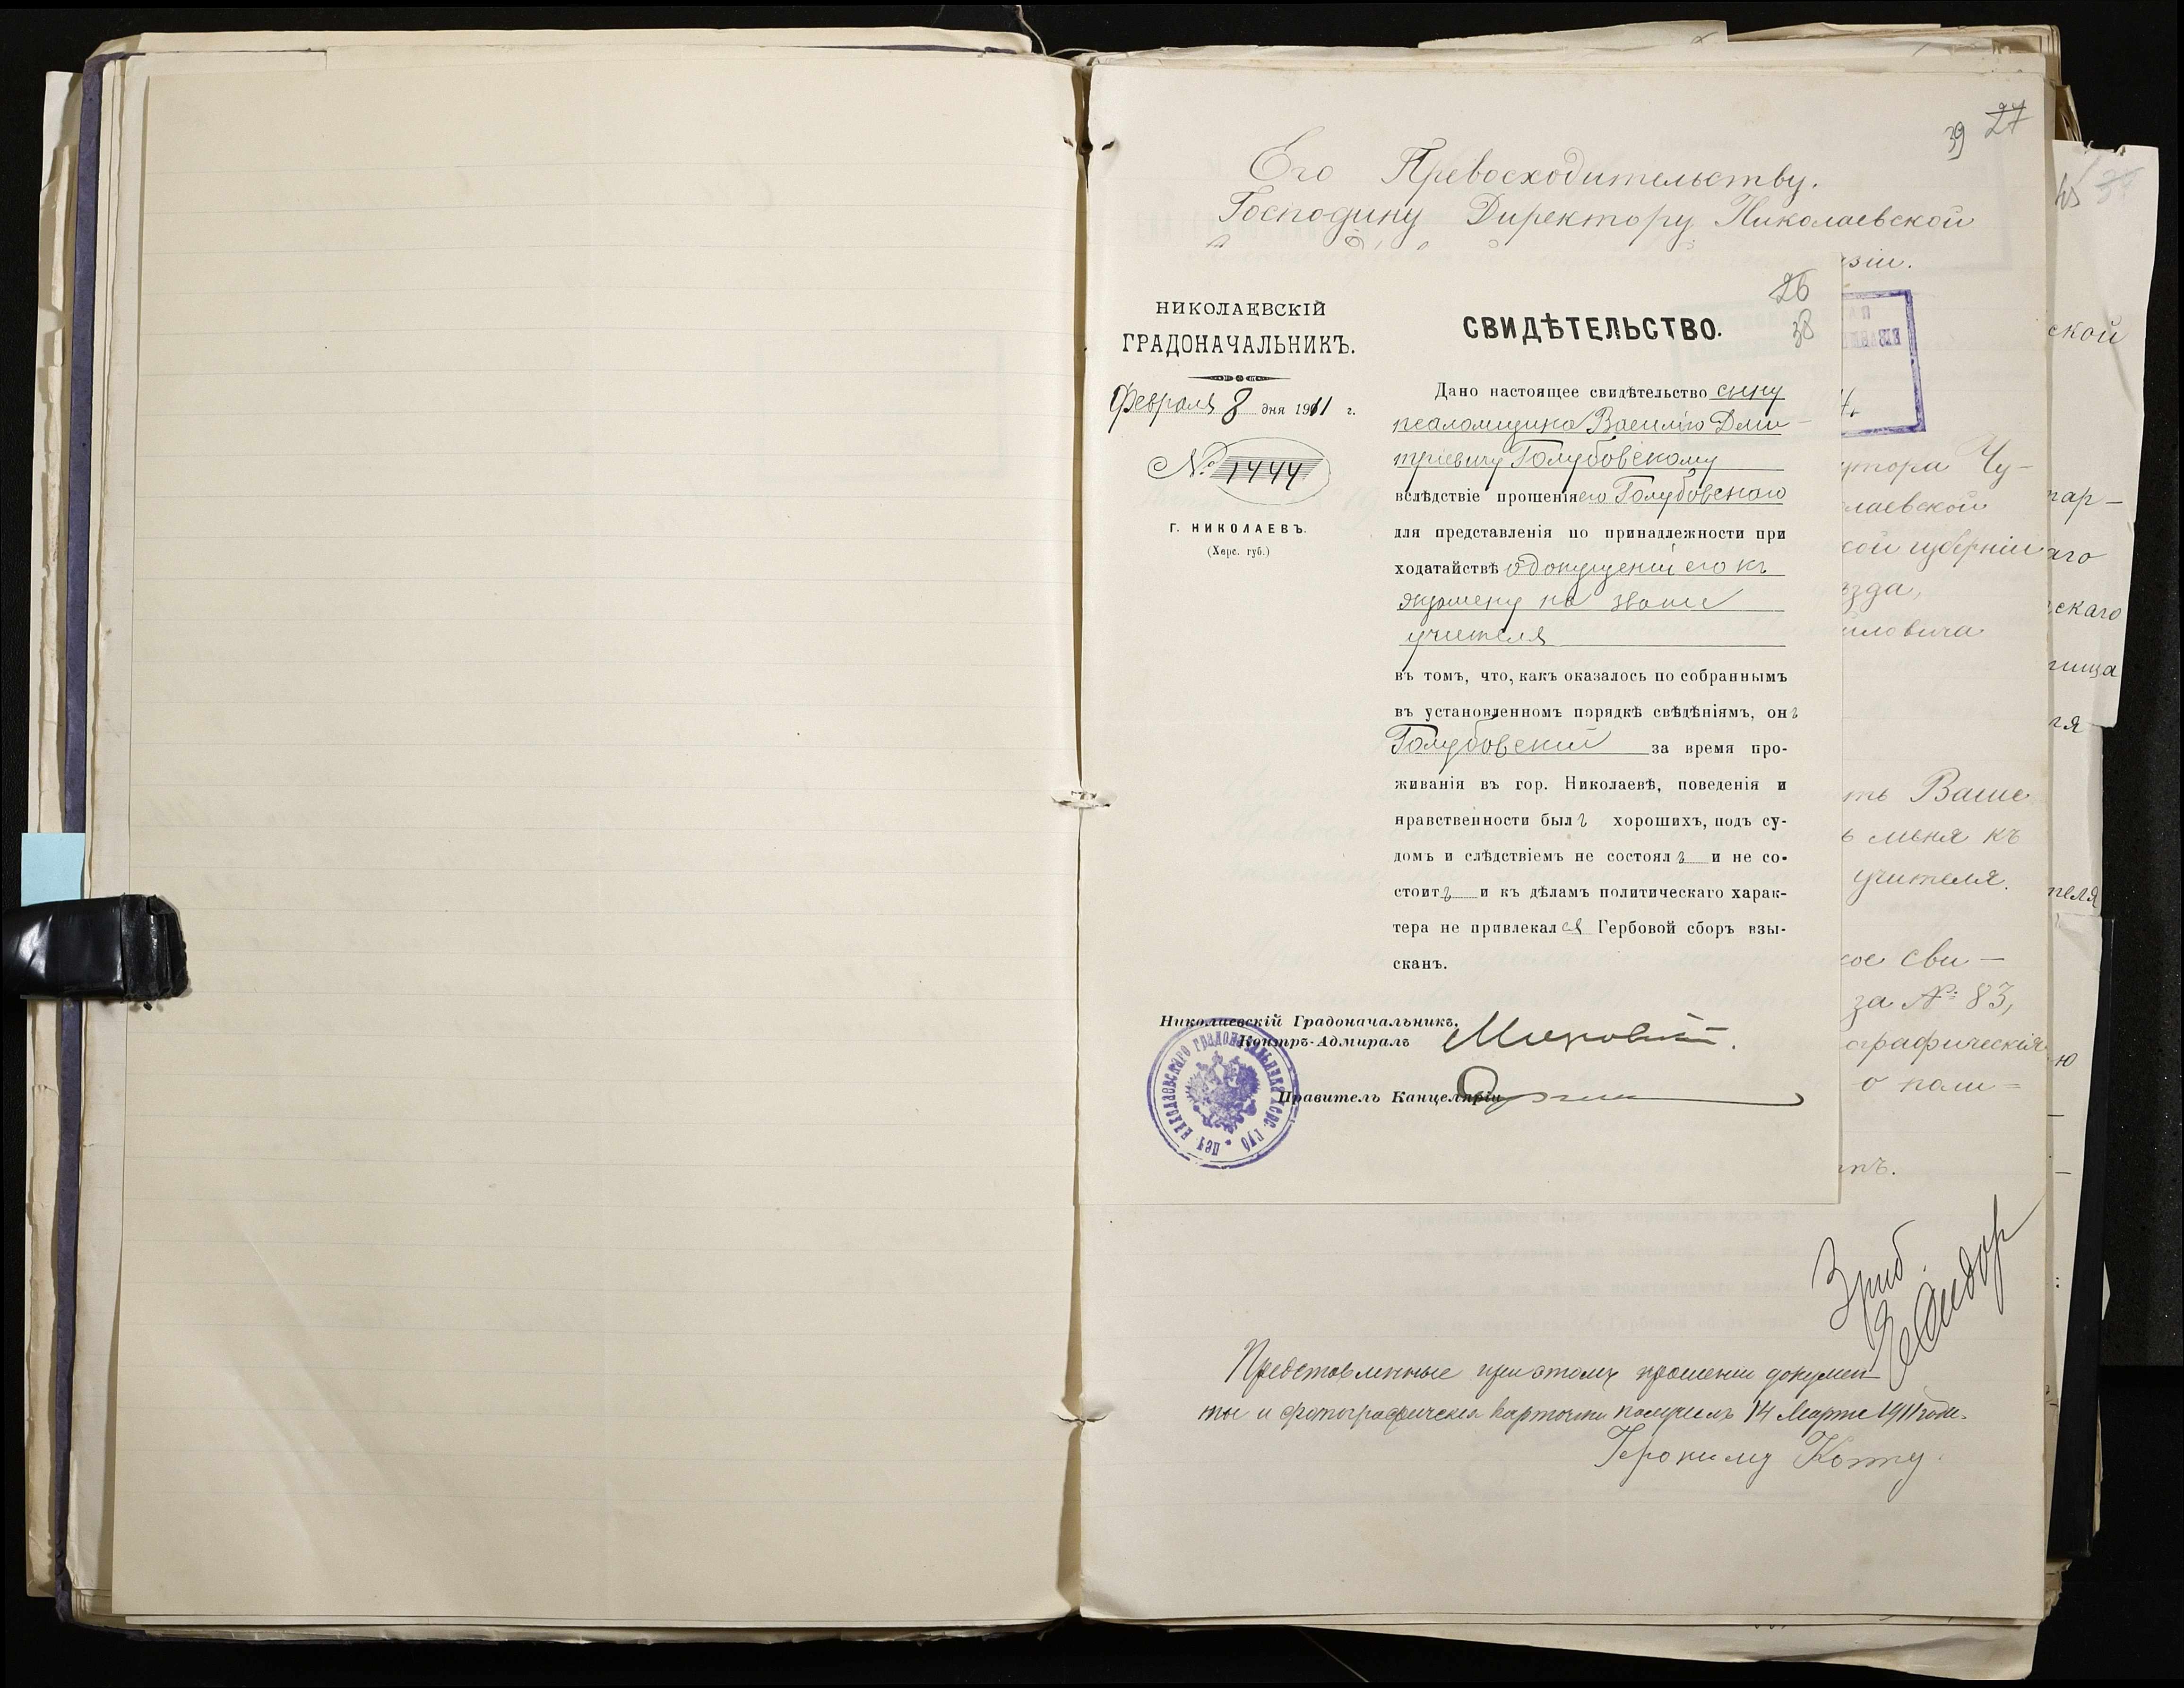 39 27
Его Превосходительству.
Господину Директору Николаевской
зіи.
26
38
НИКОЛАЕВСКІЙ
ГРАДОНАЧАЛЬНИКЪ.
Февраля 8 дня 1911 г.
№ 1444
Г. НИКОЛАЕВЪ.
(Херс. губ.)
СВИДѢТЕЛЬСТВО.
Дано настоящее свидѣтельство сыну
псаломщика Василію Дми-
тріевичу Голубовскому
вслѣдствіе прошенія его Голубовскаго
для представленія по принадлежности при
ходатайствѣ о допущеніи его къ
экзамену на званіе
учителя
въ томъ, что, какъ оказалось по собраннымъ
въ установленномъ порядкѣ свѣдѣніямъ, онъ
Голубовскій за время про-
живанія въ гор. Николаевѣ, поведенія и
нравственности былъ хорошихъ, подъ су-
домъ и слѣдствіемъ не состоялъ и не со-
стоитъ и къ дѣламъ политическаго харак-
тера не привлекался Гербовой сборъ взы-
сканъ.
Николаевскій Градоначальникъ,
Контръ-Адмиралъ
Правитель Канцеляріи
утора Чу-
лаевской
кой губерніи
ѣзда,
иловича
ть Ваше
ь меня къ
учителя.
кое сви-
за № 83,
ографическія
о поли-
тъ.
ской
тар-
аго
скаго
лища
ля
теля
ю
Представленные при этомъ прошеніи докумен-
ты и фотографическія карточки получилъ 14 Марта 1911 года.
Герониму Котту.